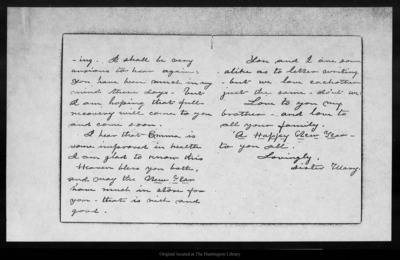 -ing. I shall be very
anxious to hear again:
You have been much in my
mind these days. but
I am hoping that full
recovery will come to you
and come soon.
I hear that Emma is
some improved in health
I am glad to know this
Heaven bless you both,
and may the New Year
have much in store for
you. that is rich and
good.
You and I are som
alike as to letter writing
- but we love eachother
just the same - don't we
Love to you my
brother - and love to
all your family.
A Happy New Year -
to you all.
Lovingly,
Sister Mary.
Original located at The Huntington Library